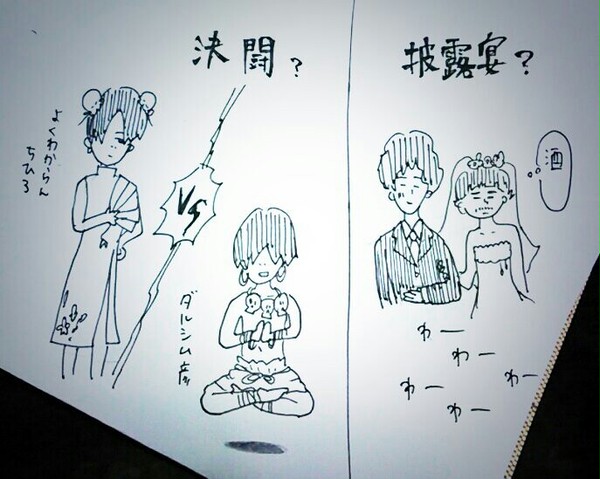 決闘?
よくわからん
ちひろ
VS
ダルシム彦
披露宴?
酒
わー
わー
わー
わー
わー